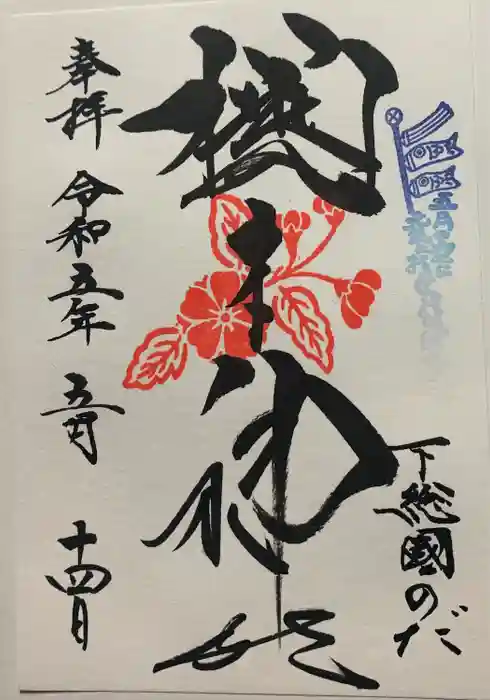 五月
下総國のだ
櫻木神社
奉拝 令和五年 五月 十四日